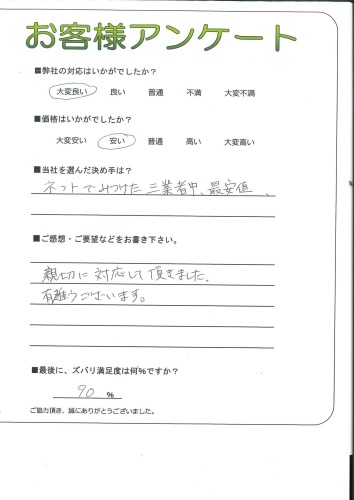 お客様アンケート
■弊社の対応はいかがでしたか？
大変良い 良い 普通 不満 大変不満
■価格はいかがでしたか？
大変安い 安い 普通 高い 大変高い
■当社を選んだ決め手は？
ネットでみつけた三業者中、最安値、
■ご感想・ご要望などをお書き下さい。
親切に対応して頂きました。
有難うございます。
■最後に、ズバリ満足度は何%ですか？
90 %
ご協力頂き、誠にありがとうございました。